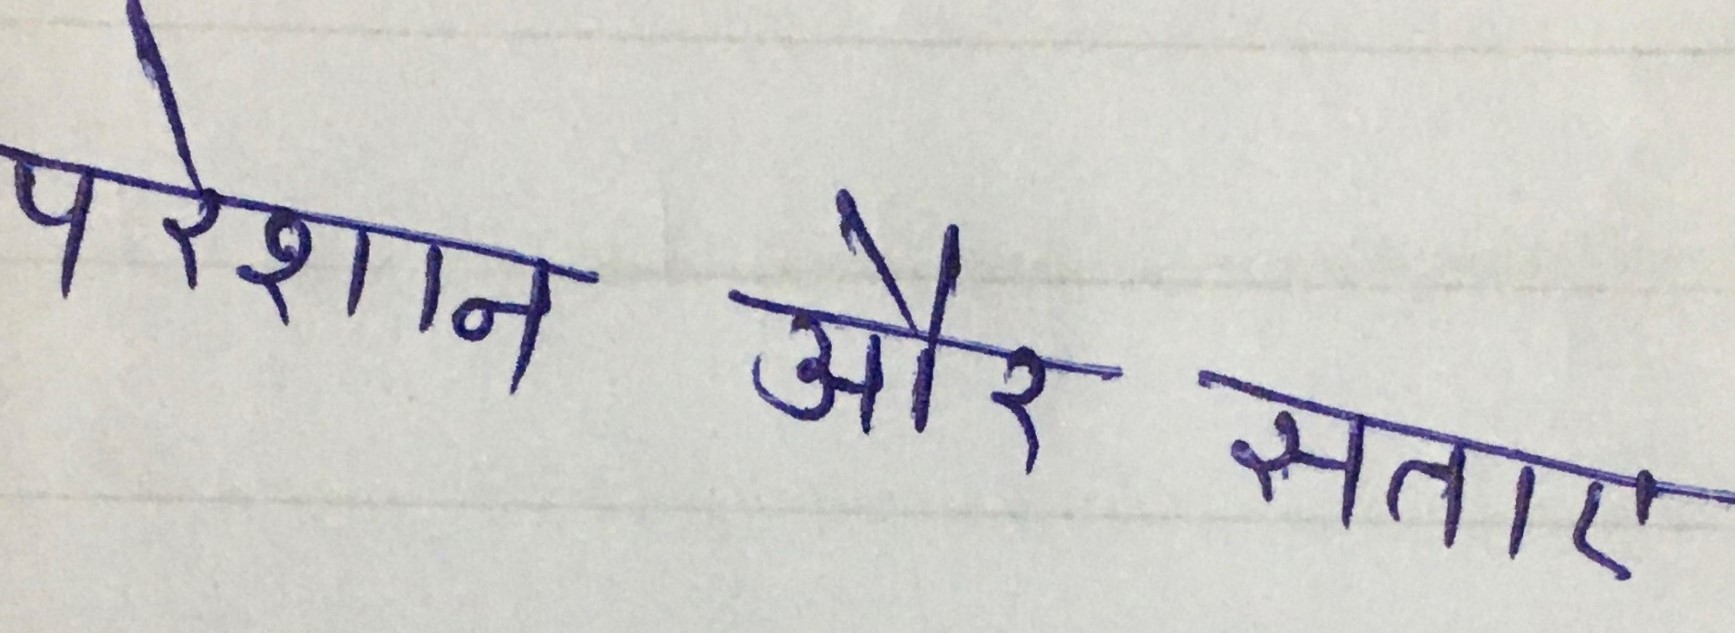 परेशान और सताए